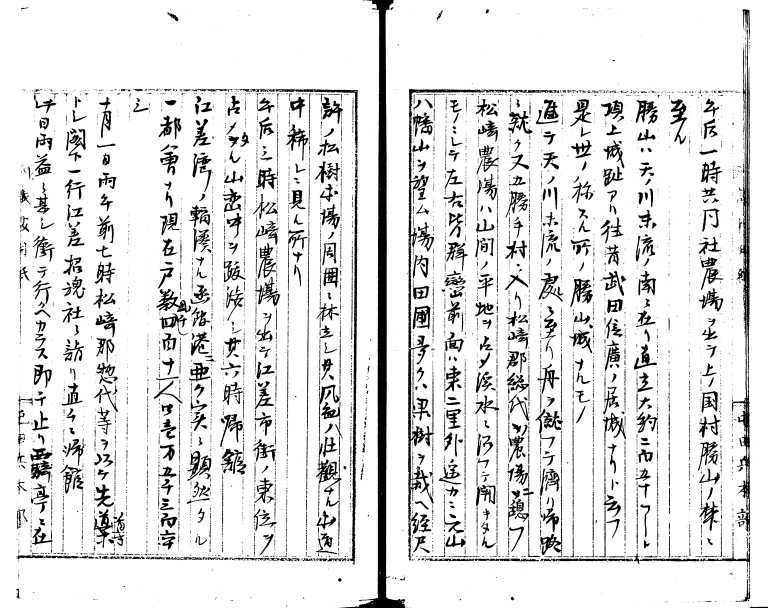 午后一時共同社農場ヲ出テ上ノ国村勝山ノ林ニ
至ル
勝山ハ天ノ川末流ノ南ニ在リ直立大約二百五十フート
頂上城趾アリ往昔武田信廣ノ居城ナリト云フ
是レ世ノ称スル所ノ勝山城ナルモノ
進テ天ノ川末流ノ処ニ至リ舟ヲ僦フテ済リ帰路
ニ就ク又五勝手村ニ入リ松崎郡総代ノ農場ニ憩フ
松崎農場ハ山間ノ平地ヲ占メ渓水ニ沿フテ開キタル
モノニシテ左右皆群巒前面ハ東二里外遥カニ元山
八幡山ヲ望ム場内田圃多クハ果樹ヲ栽ヘ経尺
許ノ松樹場ノ周囲ニ林立シ其風致ハ壮観ナル山道
中稀レニ見ル所ナリ
午后三時松崎農場ヲ出テ江差市街ノ東位ヲ
占メタル山巒中ヲ跋渉シ其六時帰館
江差湾ノ輻湊ナル函館港ニ亜ク実ニ顕然タル
一都會ナリ現在戸数四百十八人口壱万五千三百
シ
十月一日雨午前七時松崎郡惣代等ヲ以テ先導
トシ閣下一行江差招魂社ニ詣リ直チニ帰館
午日雨益々甚シ衝テ行ヘカラス即チ止リ霽亭ニ在